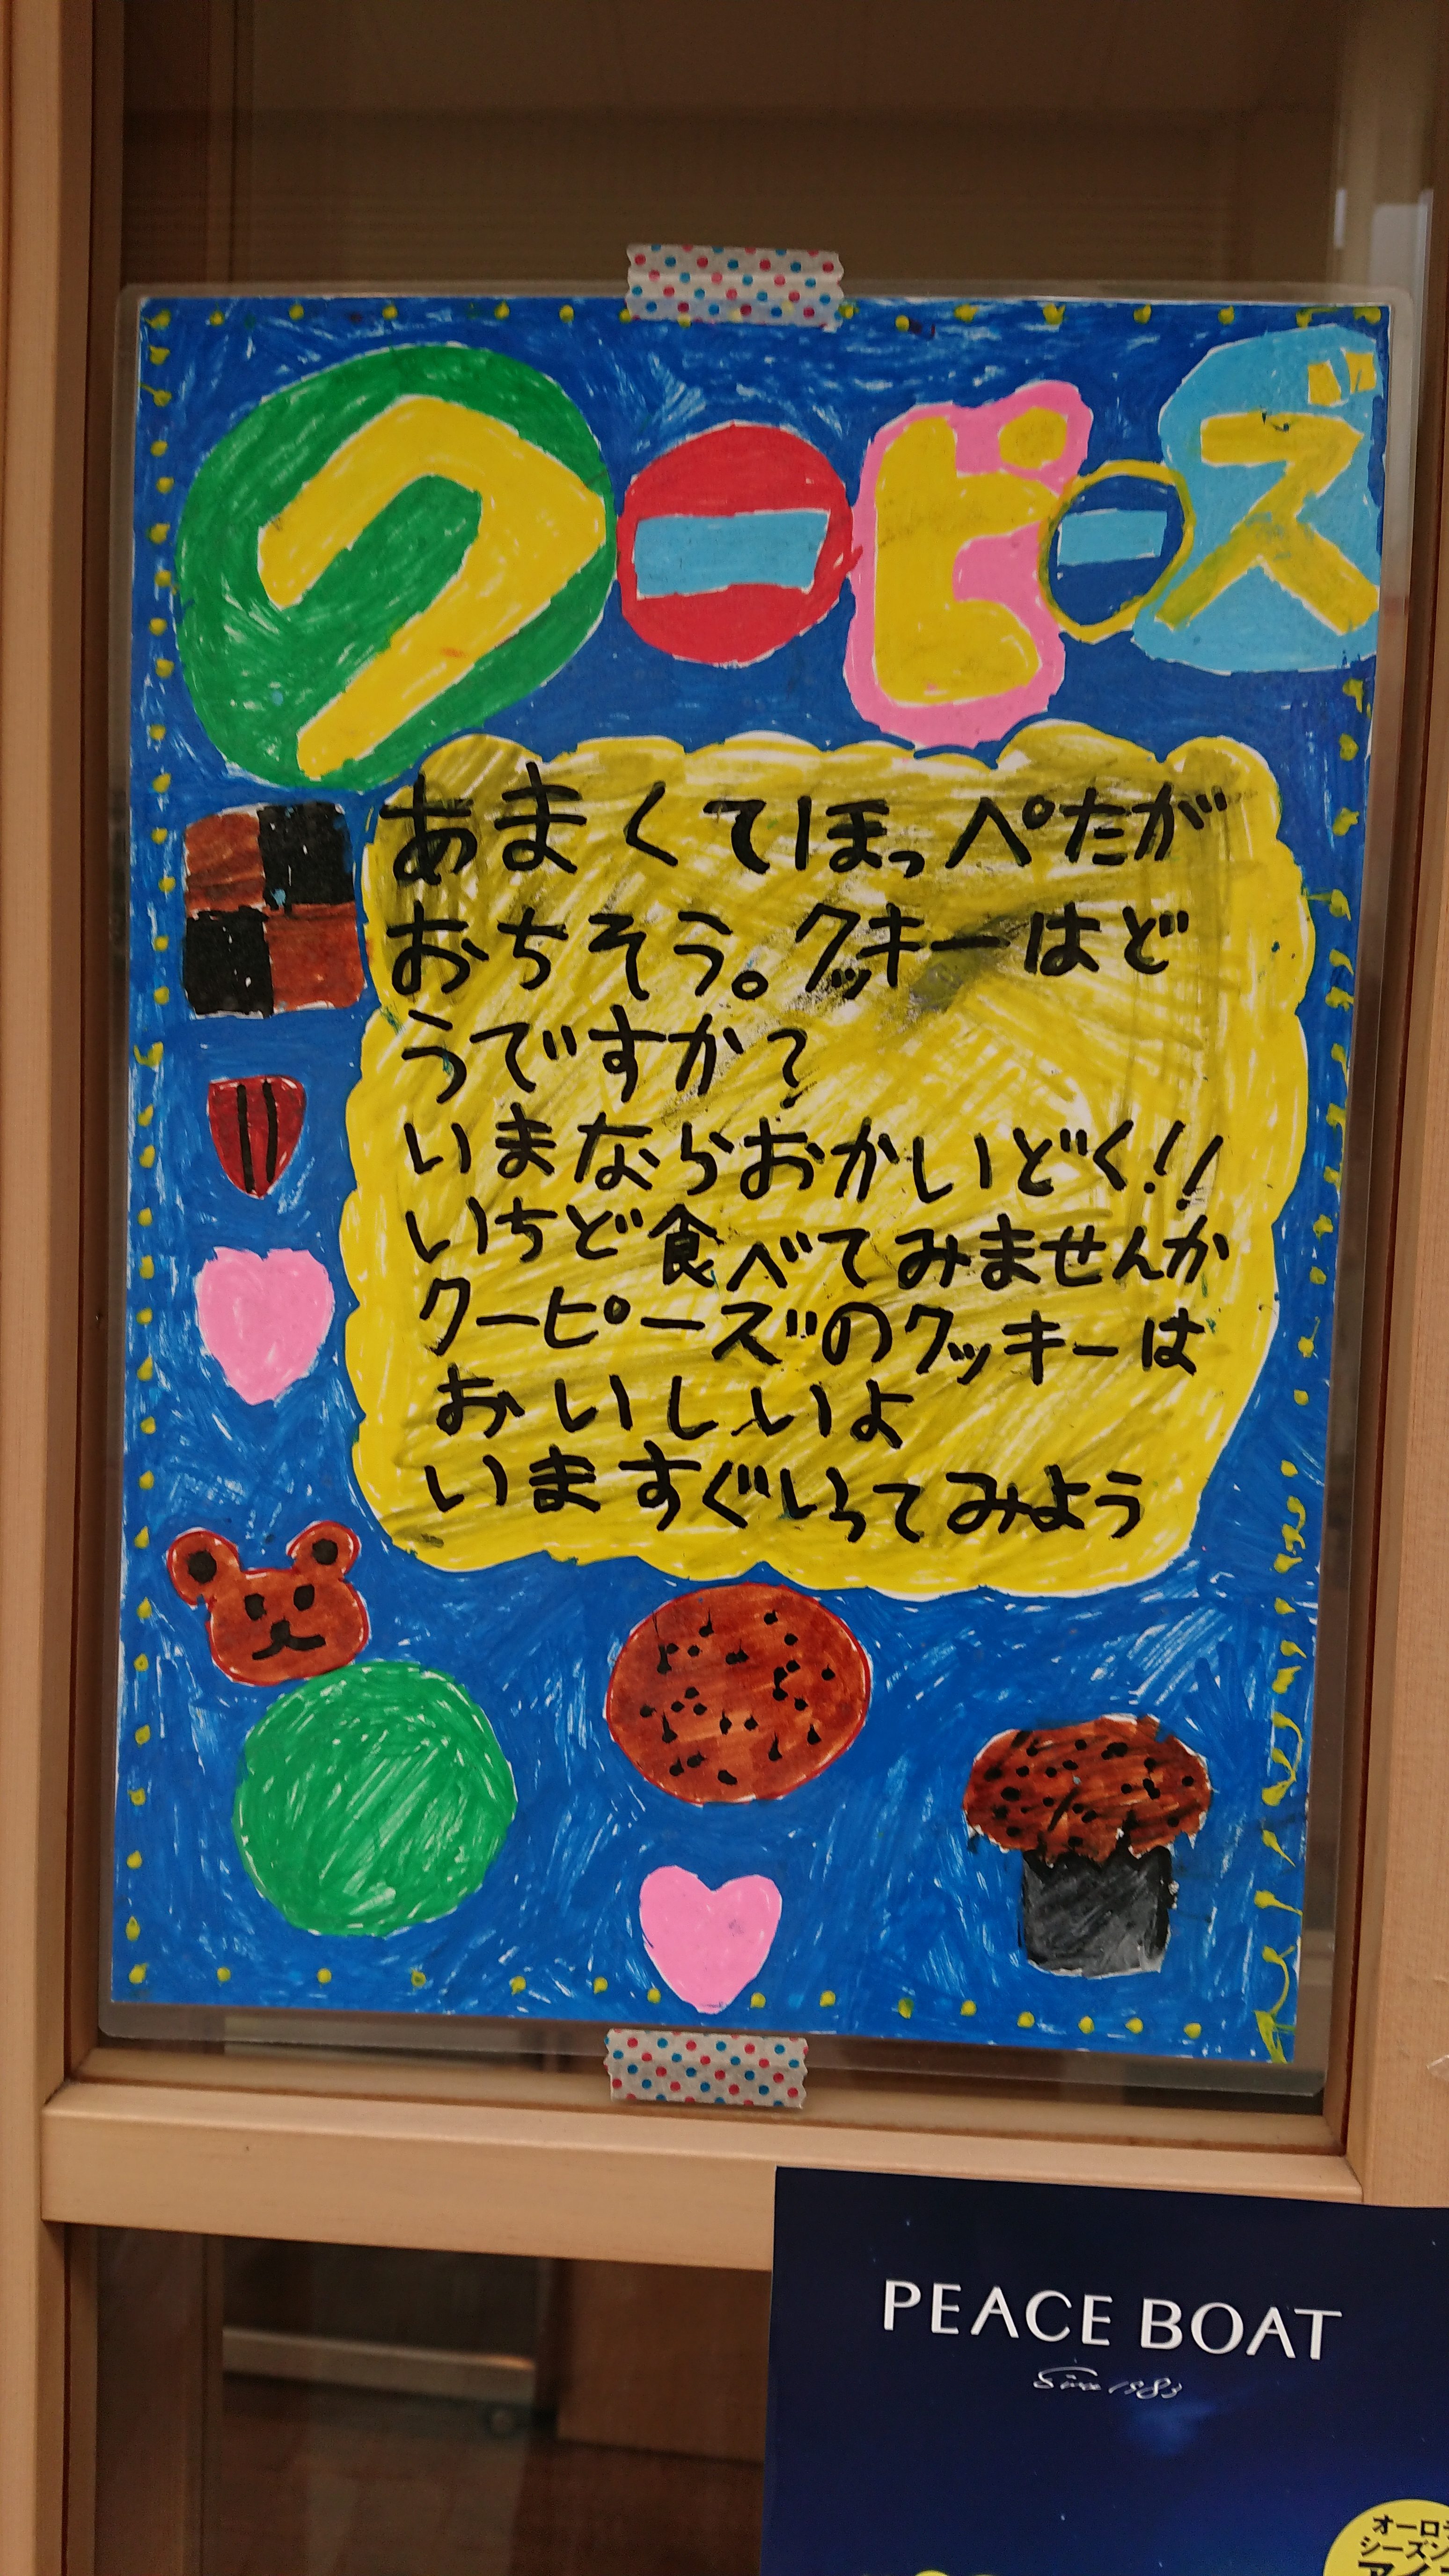 クーピーズ
あまくてほっぺたが
おちそう。クッキーはど
うですか?
いまならおかいどく!!
いちど食べてみませんか
クーピーズのクッキーは
おいしいよ
いますぐいってみよう
PEACE BOAT
Since 1983
オーロラ
シーズン